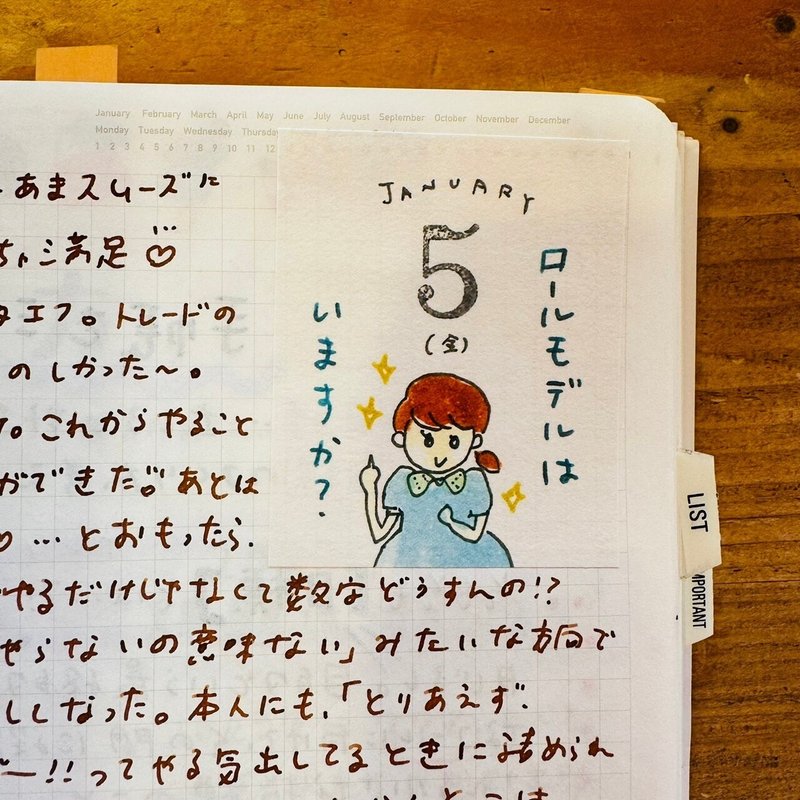 January February March April May June July August September October November December
Monday Tuesday Wednesday Thursday
1 2 3 4 5 6 7 8 9 10 11 12
JANUARY
5
(金)
ロールモデルは
いますか?
あまスムーズに
ちゃ満足♡
エフ。トレードの
のしかった〜。
。これからやること
ができた。あとは
♡…とおもったら、
やるだけじゃなくて数字どうすんの!?
やらないの意味ない」みたいな方向で
ししなった。本人にも、「とりあえず、
ー!!ってやる気出してるときに詰められ
LIST
IMPORTANT